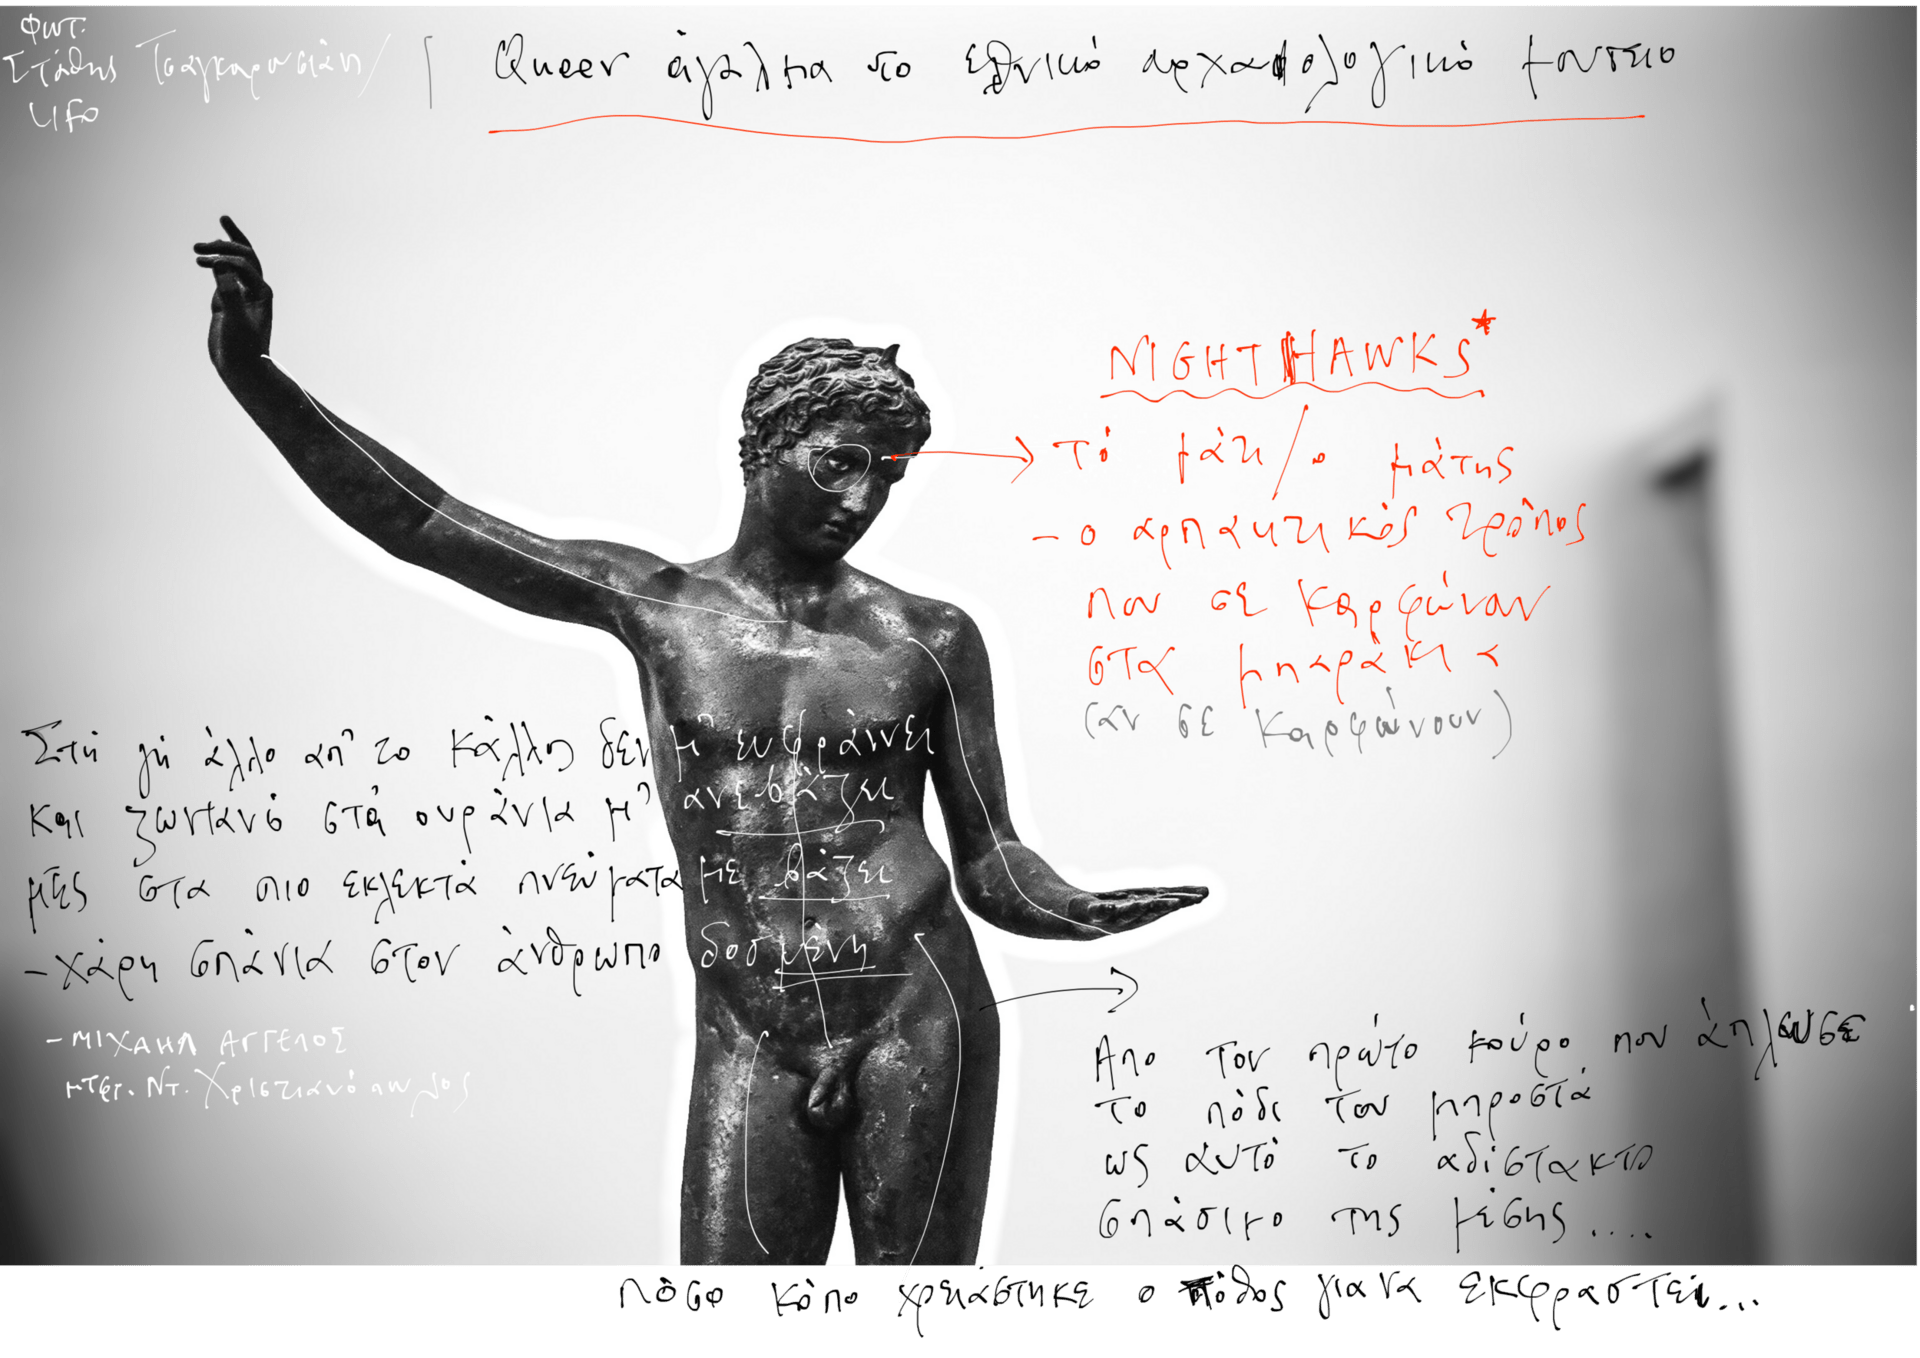 Φωτ.
Στάθης Τσαγκαρουσιάν/
LIFO
Queer άγαλμα στο εθνικό αρχαιολογικό μουσείο
NIGHTHAWKS*
Τό μάτι / ο μάτης
– ο αρπακτικός τρόπος
που σε καρφώναν
στα μπαράκια
(αν σε καρφώνουν)
Στη γη άλλο απ' το κάλλος δεν μ' ευφραίνει
και ζωντανό στα ουράνια μ' ανεβάζει
μες στα πιο εκλεκτά πνεύματα με βάζει
– χάρη σπάνια στον άνθρωπο δοσμένη
– ΜΙΧΑΗΛ ΑΓΓΕΛΟΣ
μτφρ. Ντ. Χριστιανόπουλος
Απο τον πρώτο κούρο που άπλωσε
το πόδι του μπροστά
ως αυτό το αδίστακτο
σπάσιμο της μέσης ....
πόσο κόπο χρειάστηκε ο πόθος για να εκφραστεί...